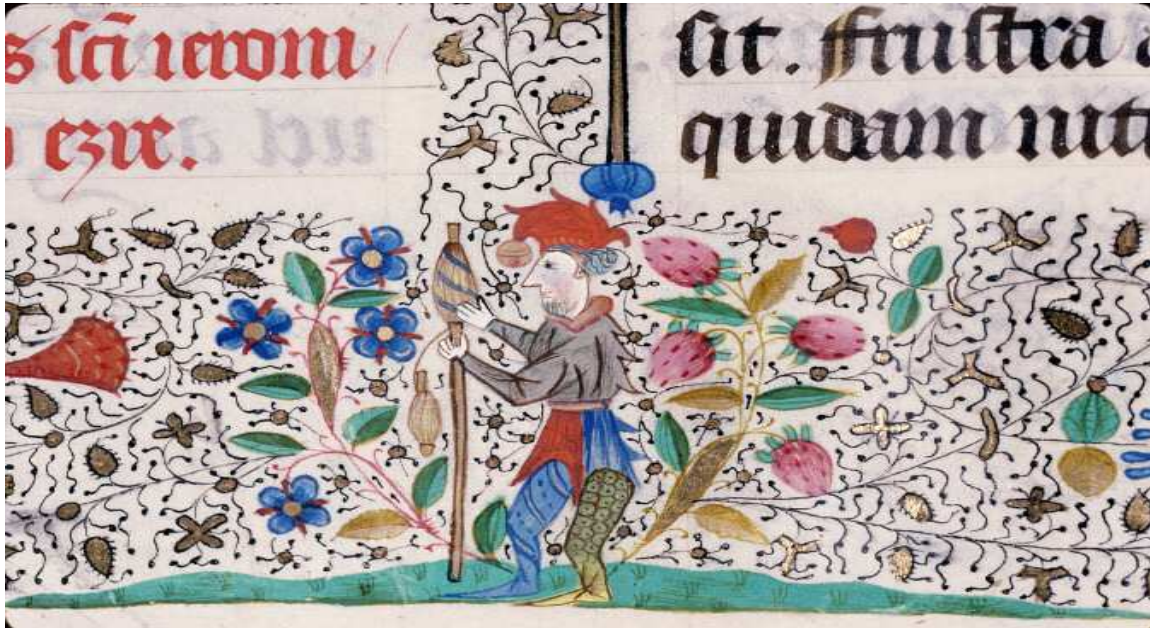 s sci̅ ieroni
ezre.
sit. ffrustra a
quidam niti